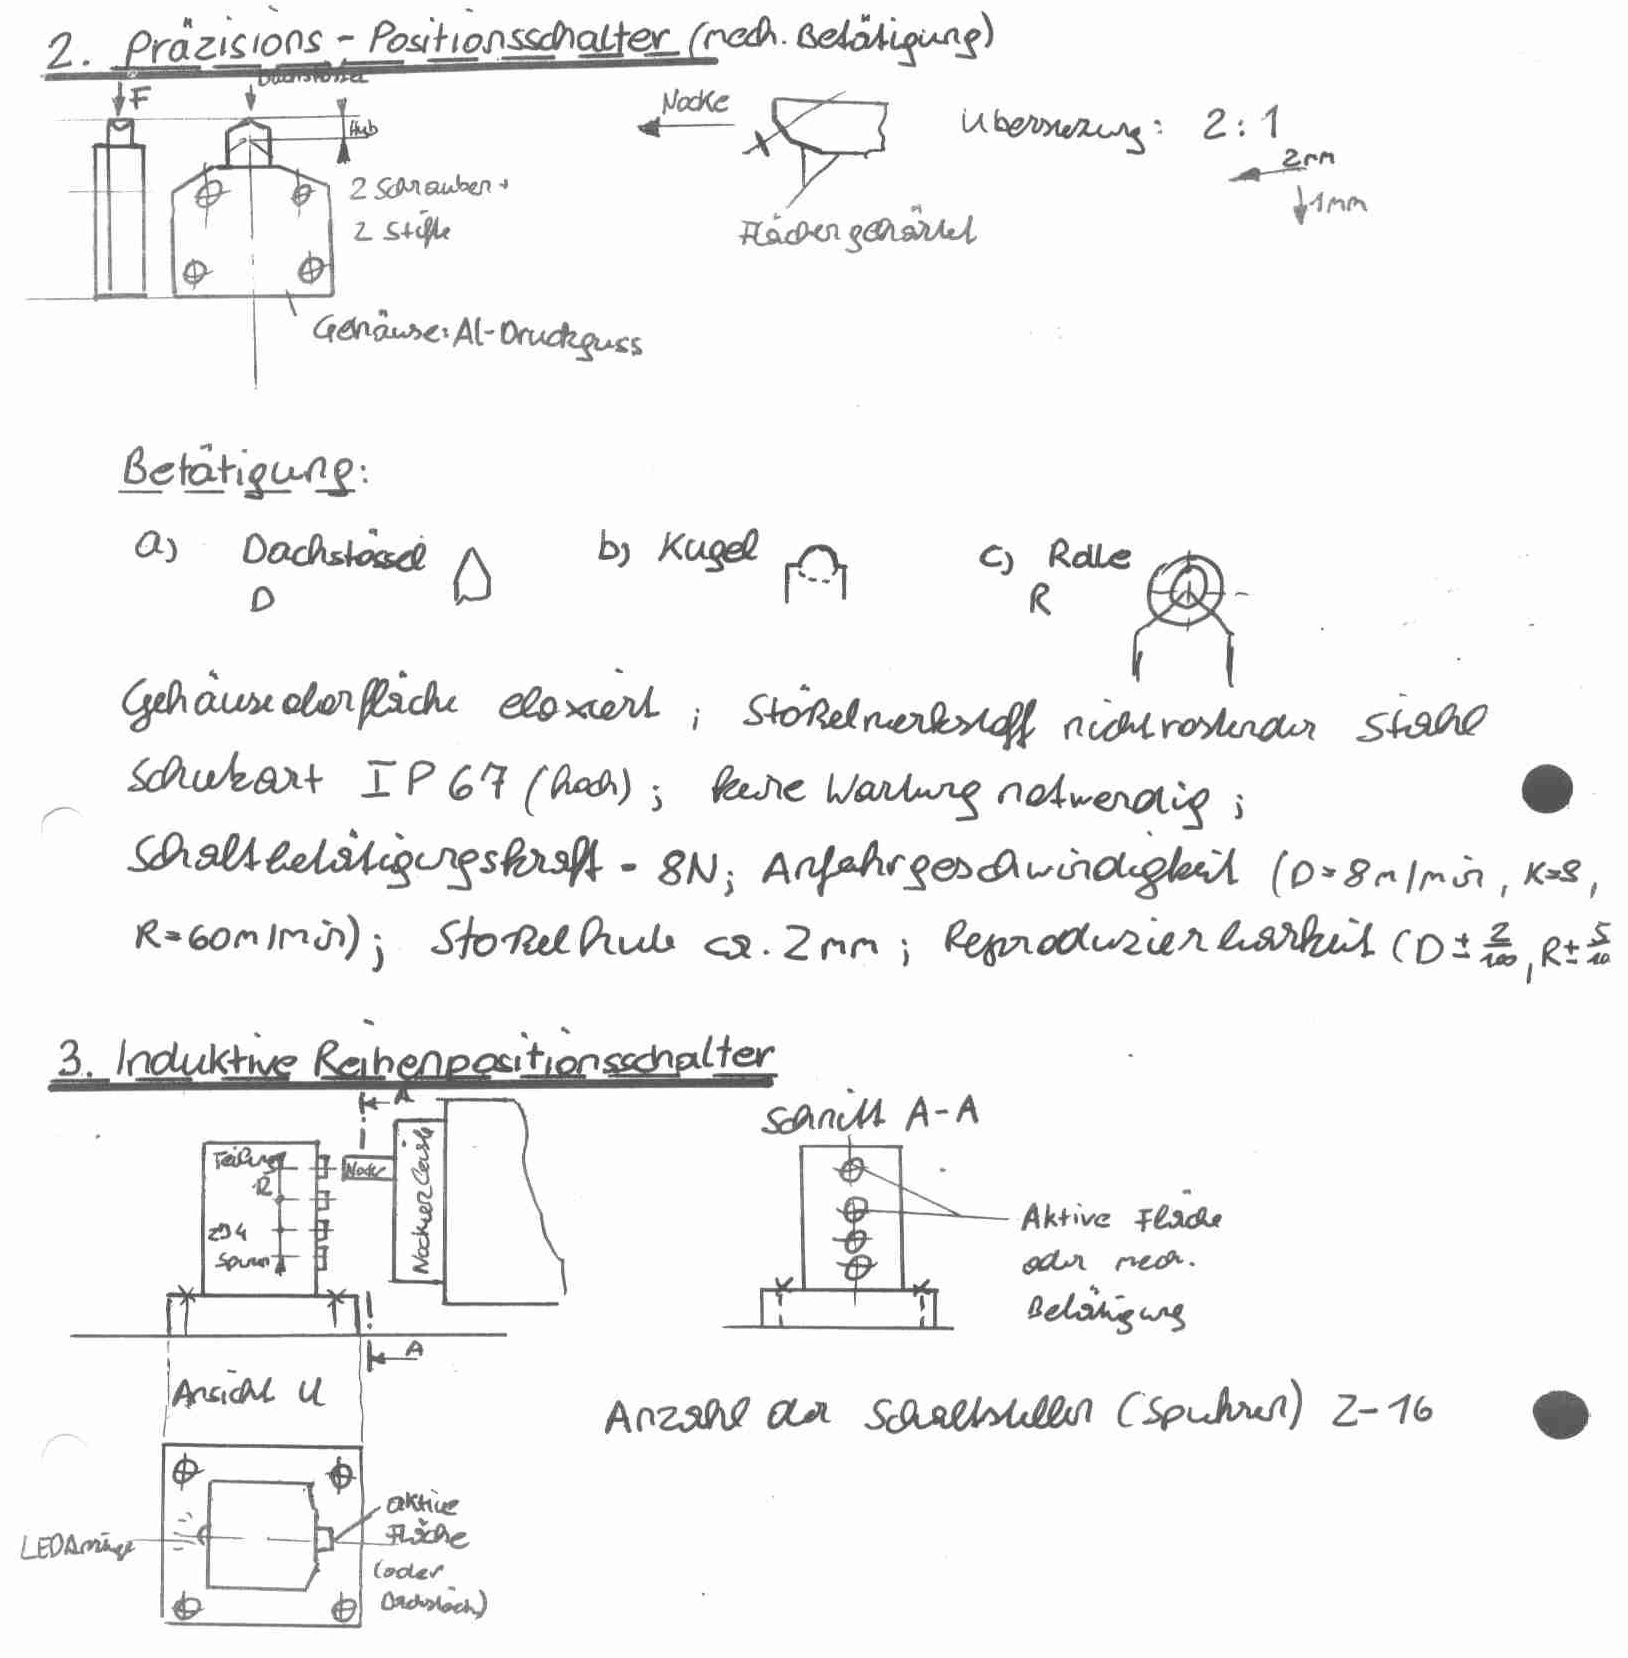 2. Präzisions-Positionsschalter (mech. Betätigung)
Dachstössel
F
Hub
2 Schrauben +
2 Stifte
Gehäuse: Al-Druckguss
Nocke
Flächen gehärtet
Übersetzung: 2:1
2mm
1mm
Betätigung:
a) Dachstössel
D
b) Kugel
c) Rolle
R
Gehäuseoberfläche eloxiert; Stößelwerkstoff nichtrostender Stahl
Schutzart IP 67 (hoch); keine Wartung notwendig;
Schaltbetätigungskraft - 8N; Anfahrgeschwindigkeit (D=8m/min, K=8,
R=60m/min); Stößelhub ca. 2mm; Reproduzierbarkeit (D ± 2/100, R ± 5/10
3. Induktive Reihenpositionsschalter
A
Teilung
12
Spuren
Nocke
Nockenleiste
A
Schnitt A-A
Aktive Fläche
oder mech.
Betätigung
Ansicht U
Anzahl der Schaltstellen (Spuhren) 2-16
LED Anzeige
aktive
Fläche
(oder